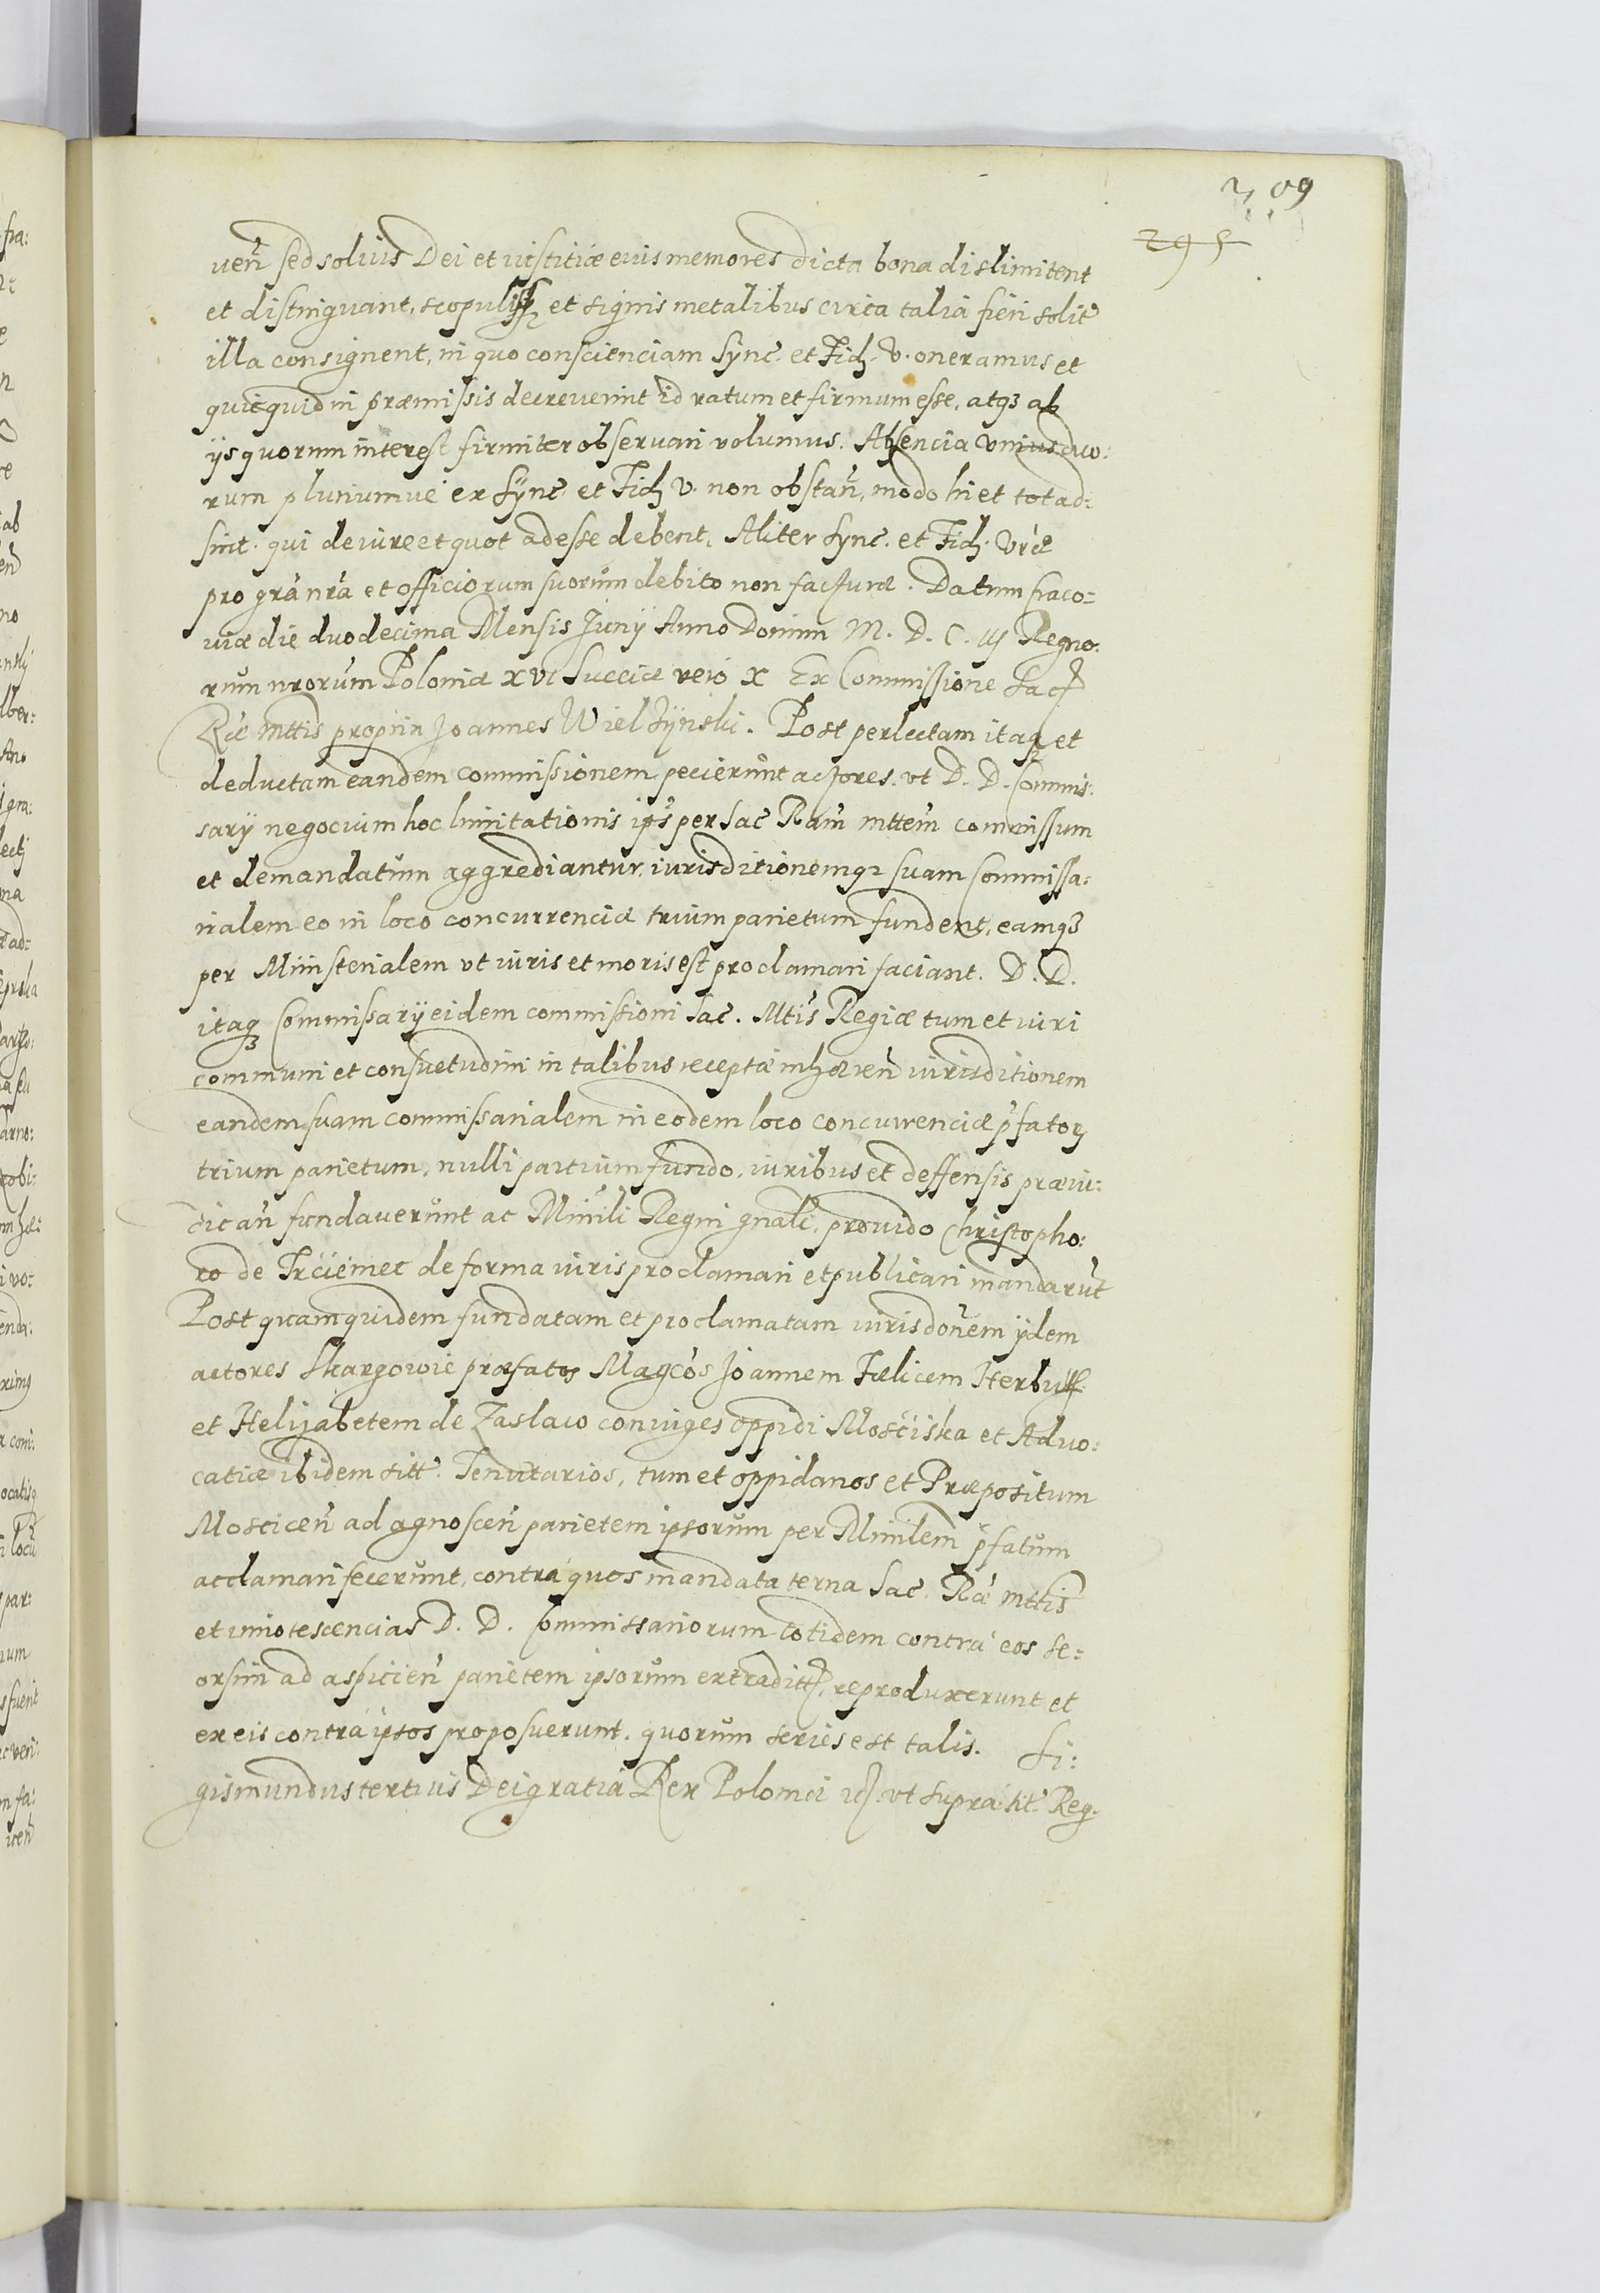 309
295
ven̄ sed solius Dei et iustitiæ eius memores dicta bona dislimitent
et distinguant, scopulisq et signis metalibus circa talia fieri solit
illa consignent, in quo conscienciam Sync. et Fid. V. oneramus et
quicquid in præmissis decreverint id ratum et firmum esse, atqȝ ab
ijs quorum interest firmiter observari volumus. Absencia vnius duo:
rum pluriumve ex Sync. et Fid. V. non obstan̄, modo hi et tot ad:
sint. qui de iure et quot adesse debent, Aliter Sync. et Fid. Vræ
pro gra nra et officiorum suorum debito non facturæ. Datum Craco=
viæ die duodecima Mensis Junij Anno Domini M. D. C. iij Regno:
rum nrorum Poloniæ xvi Sueciæ vero x Ex Commissione Sacr
Ræ Mttis propria Joannes Wielżyński. Post perlectam itaqȝ et
deductam eandem commissionem pecierunt actores. vt D. D. Commis:
sarij negocium hoc limitationis ips per Sac Ram mttem commissum
et demandatum aggrediantur, iurisditionemqȝ suam Commissa:
rialem eo in loco concurrenciæ trium parietum fundent, eamqȝ
per Ministerialem vt iuris et moris est proclamari faciant. D. D.
itaqȝ Commissarij eidem commissioni Sac. Mtis Regiæ tum et iuri
communi et consuetudini in talibus receptæ inhæren̄ iurisditionem
eandem suam commissarialem in eodem loco concurrenciæ pfator
trium parietum, nulli partium fundo, iuribus et deffensis præiu:
dican̄ fundaverunt ac Minili Regni gnali, provido Christopho:
ro de Trcieniec de forma iuris proclamari et publicari mandarut
Post quam quidem fundatam et proclamatam iurisdonem ijdem
actores Skargowie præfatos Magcos Joannem Fælicem Herburt
et Helizabetem de Zaslaw coniuges oppidi Mosciska et Advo:
catiæ ibidem sitt. Tenutarios, tum et oppidanos et Præpositum
Moscicen̄ ad agnoscen̄ parietem ipsorum per Minilem pfatum
acclamari fecerunt, contra quos mandata terna Sac. Ræ Mttis
et innotescencias D. D. Commissariorum totidem contra eos se=
orsim ad aspicien̄ parietem ipsorum extradittȝ, reproduxerunt et
ex eis contra ipsos proposuerunt. quorum series est talis. Si:
gismundus tertius Dei gratia Rex Poloniæ ut supra tit. Reg.